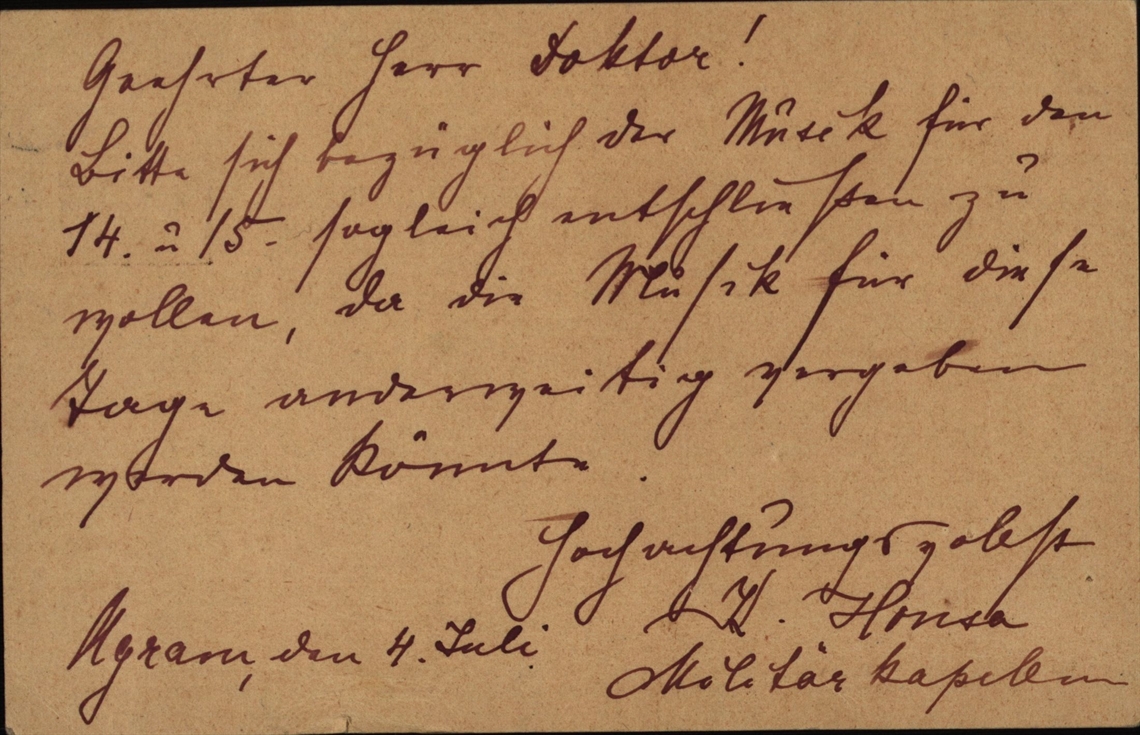 Geehrter Herr Doktor!
Bitte sich bezüglich der Musik für den
14. u 15. sogleich entschließen zu
wollen, da die Musik für diese
Tage anderweitig vergeben
werden könnte.
Hochachtungsvollst
Honsa
Agram, den 4. Juli
Militärkapellm